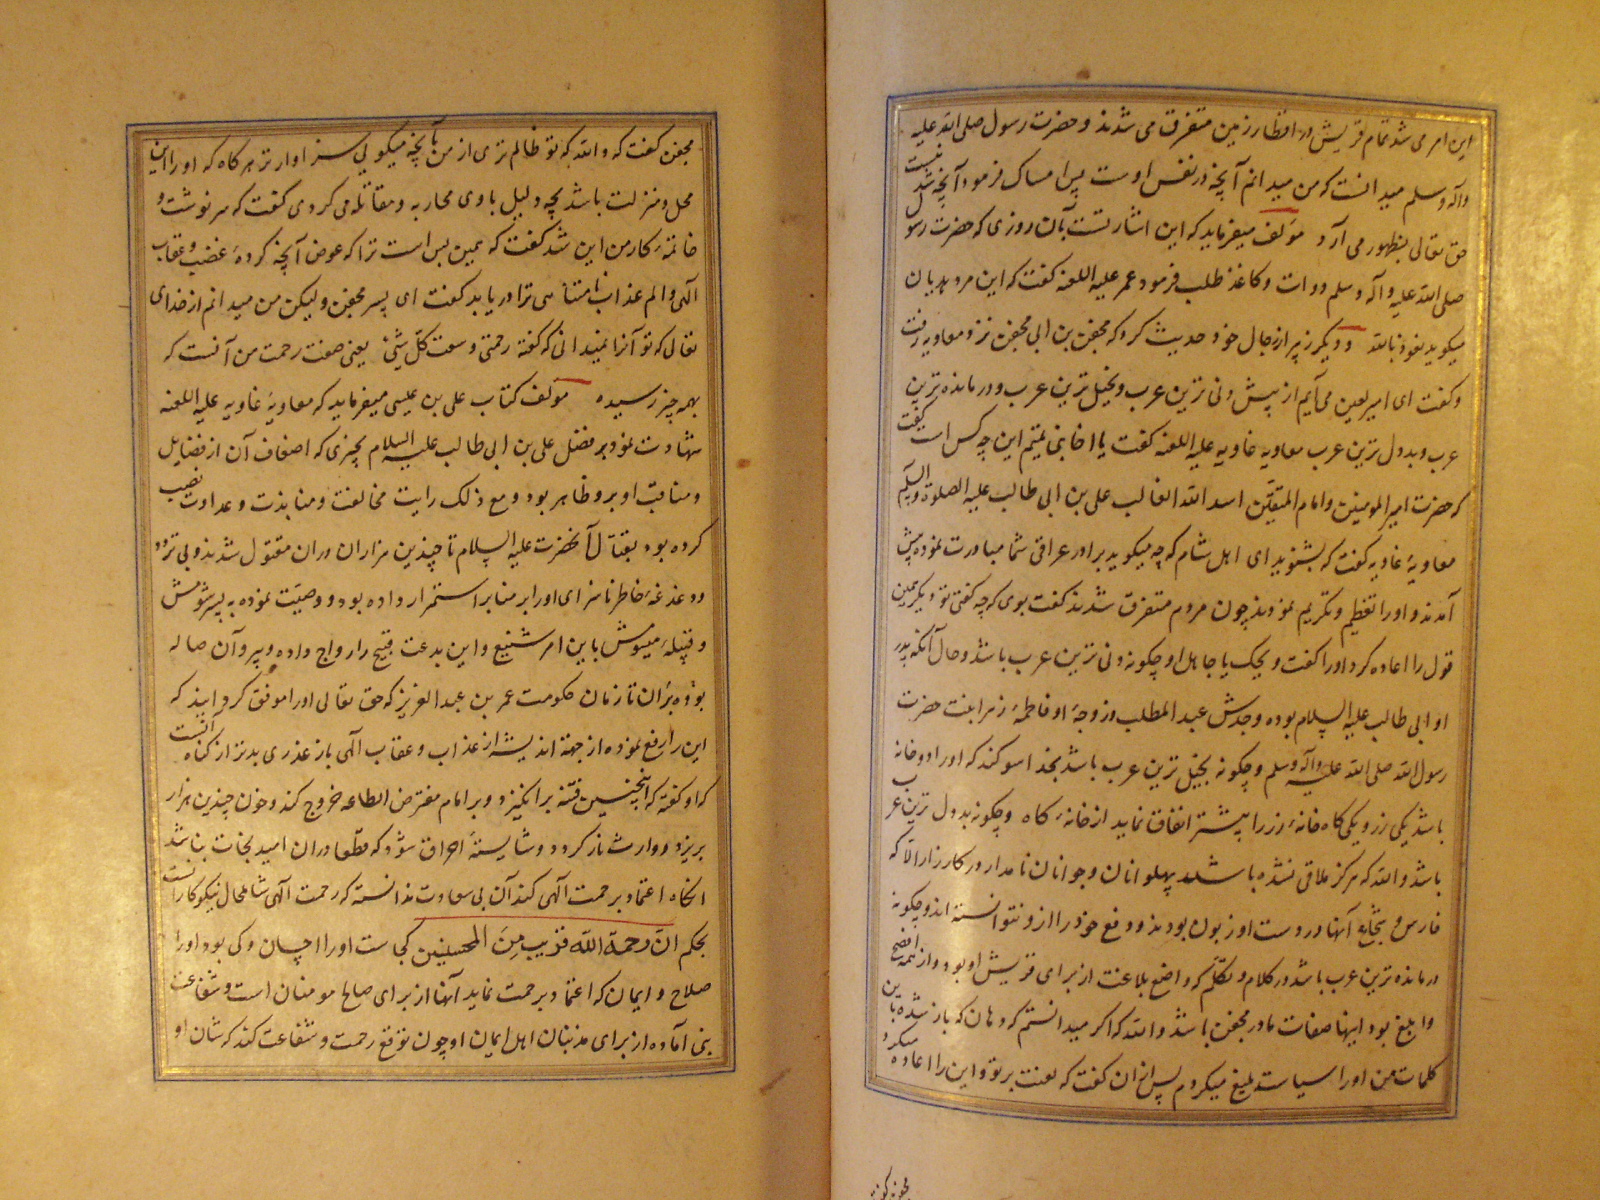 این امر می شد تمام قریش در اقطار زمین متفرق می شدند و حضرت رسول صلی الله علیه
وآله وسلم میدانست که من میدانم آنچه در نفس اوست پس امساک فرمود آنچه
حق تعالی بظهور می آرد مؤلف میفرماید که این اشارتست بآن روزی که حضرت رسول
صلی الله علیه وآله وسلم دوات و کاغذ طلب فرمود عمر علیه اللعنه گفت که این مرد هذیان
میگوید نعوذ بالله و دیگر زبیر از رجال خود حدیث کرد که محفن بن ابی محفن نزد معاویه رفت
و گفت ای امیر لعین می آیم از پیش دنی ترین عرب و بخیل ترین عرب و درمانده ترین
عرب و بددل ترین عرب معاویه غاویه علیه اللعنه گفت یا اخا بنی تمیم این چه کس است گفت
که حضرت امیر المومنین وامام المتقین اسد الله الغالب علی بن ابی طالب علیه الصلوة والسلم
معاویهٔ غاویه گفت که بشنوید ای اهل شام که چه میگوید برادر عراقی شما مبادرت نموده پیش
آمدند و اورا تعظیم و تکریم نمودند چون مردم متفرق شدند گفت بوی که چه گفتی تو دیگر همین
قول را اعاده کرد اورا گفت ویحک یا جاهل او چگونه دنی ترین عرب باشد وحال آنکه پدر
او ابی طالب علیه السلام بوده وجدش عبد المطلب و زوجهٔ او فاطمهٔ زهرا بنت حضرت
رسول الله صلی الله علیه وآله وسلم و چگونه بخیل ترین عرب باشد بخدا سوگند که اورا دو خانه
باشد یکی زر و یکی کاه خانهٔ زر را پیشتر انفاق نماید از خانهٔ کاه و چگونه بددل ترین عرب
باشد والله که هرگز ملاقی نشده باشند پهلوانان و جوانان نامدار در کارزار الا که
فارس و شجاع آنها در دست او زبون بودند و دفع خود را ازو نتوانسته اند و چگونه
درمانده ترین عرب باشد در کلام و تکلم که واضع بلاغت از برای قریش او بود و از همه افصح
وابلغ بود اینها صفات مادر محفن باشد والله که اگر میدانستم که دهان که باز شده باین
کلمات من اورا سیاست بلیغ میکردم پس از آن گفت که لعنت بر تو و این را اعاده
محفن گفت که والله که تو ظالم تری از من بآنچه میگویی سزاوارتر هرگاه که اورا این
محل و منزلت باشد بچه دلیل با وی محاربه و مقاتله می کردی گفت که سرنوشت و
خاتمهٔ کار من این شد گفت که همین بس است ترا که عوض آنچه کردهٔ غضب و عقاب
الهی والم عذاب نامتناهی ترا دریابد گفت ای پسر محفن ولیکن من میدانم از خدای
تعالی که تو آنرا نمیدانی که گفته رحمتی وسعت کل شیٔ یعنی صفت رحمت من آنست که
بهمه چیز رسیده مؤلف کتاب علی بن عیسی میفرماید که معاویهٔ غاویه علیه اللعنه
شهادت نمود بر فضل علی بن ابی طالب علیه السلام بچیزی که اضعاف آن از فضایل
و مناقب او برو ظاهر بود و مع ذلک رایت مخالفت و منابذت و عداوت نصب
کرده بود بقتال آنحضرت علیه السلام تا چندین هزاران دران مقتول شدند و بی تردد
و دغدغهٔ خاطر ناسزای اورا بر منابر استمرار داده بود و وصیت نموده به پسر شومش
و قبیلهٔ میشومش باین امر شنیع و این بدعت قبیح را رواج داده و پیرو آن ضاله
بوده بران تا زمان حکومت عمر بن عبد العزیز که حق تعالی اورا موفق گردانید که
این را رفع نموده از جهة اندیشه از عذاب و عقاب الهی باز عذری بدتر از گناه آنست
که او گفته که اینچنین فتنه برانگیزد و بر امام مفترض الطاعه خروج کند و خون چندین هزار
بریزد و وارث نار گردد و شایستهٔ احراق شود که قطعا دران امید نجات نباشد
آنگاه اعتماد بر رحمت الهی کند آن بی سعادت ندانسته که رحمت الهی شامل حال نیکوکارانست
بحکم ان رحمة الله قریب من المحسنین کجاست اورا احسان و کی بود اورا
صلاح و ایمان که اعتماد بر رحمت نماید آنها از برای صالحا مومنان است و شفاعت
بنی آماده از برای مذنبان اهل ایمان او چون توقع رحمت و شفاعت کند که شان او